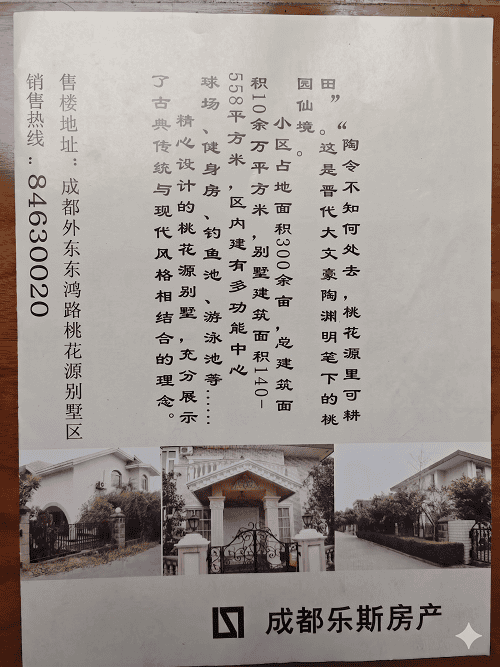 “陶令不知何处去，桃花源里可耕
田”。这是晋代大文豪陶渊明笔下的桃
园仙境。
小区占地面积300余亩，总建筑面
积10余万平方米，别墅建筑面积140-
558平方米，区内建有多功能中心
球场、健身房、钓鱼池、游泳池等……
精心设计的桃花源别墅，充分展示
了古典传统与现代风格相结合的理念。
售楼地址：成都外东东鸿路桃花源别墅区
销售热线：84630020
成都乐斯房产